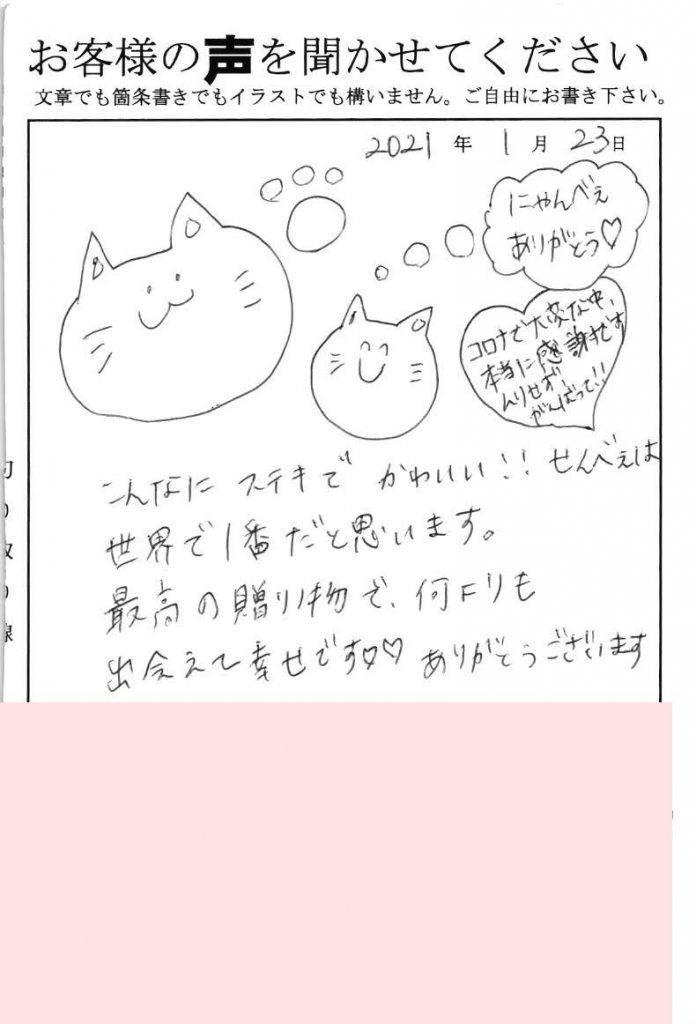 お客様の声を聞かせてください
文章でも箇条書きでもイラストでも構いません。ご自由にお書き下さい。
2021年1月23日
にゃんべぇ
ありがとう♡
コロナで大変な中、
本当に感謝です
ムリせず
がんばって!!
こんなに ステキで かわいい!! せんべぇは
世界で1番だと思います。
最高の贈り物で、何よりも
出会えて幸せです♡♡ ありがとうございます